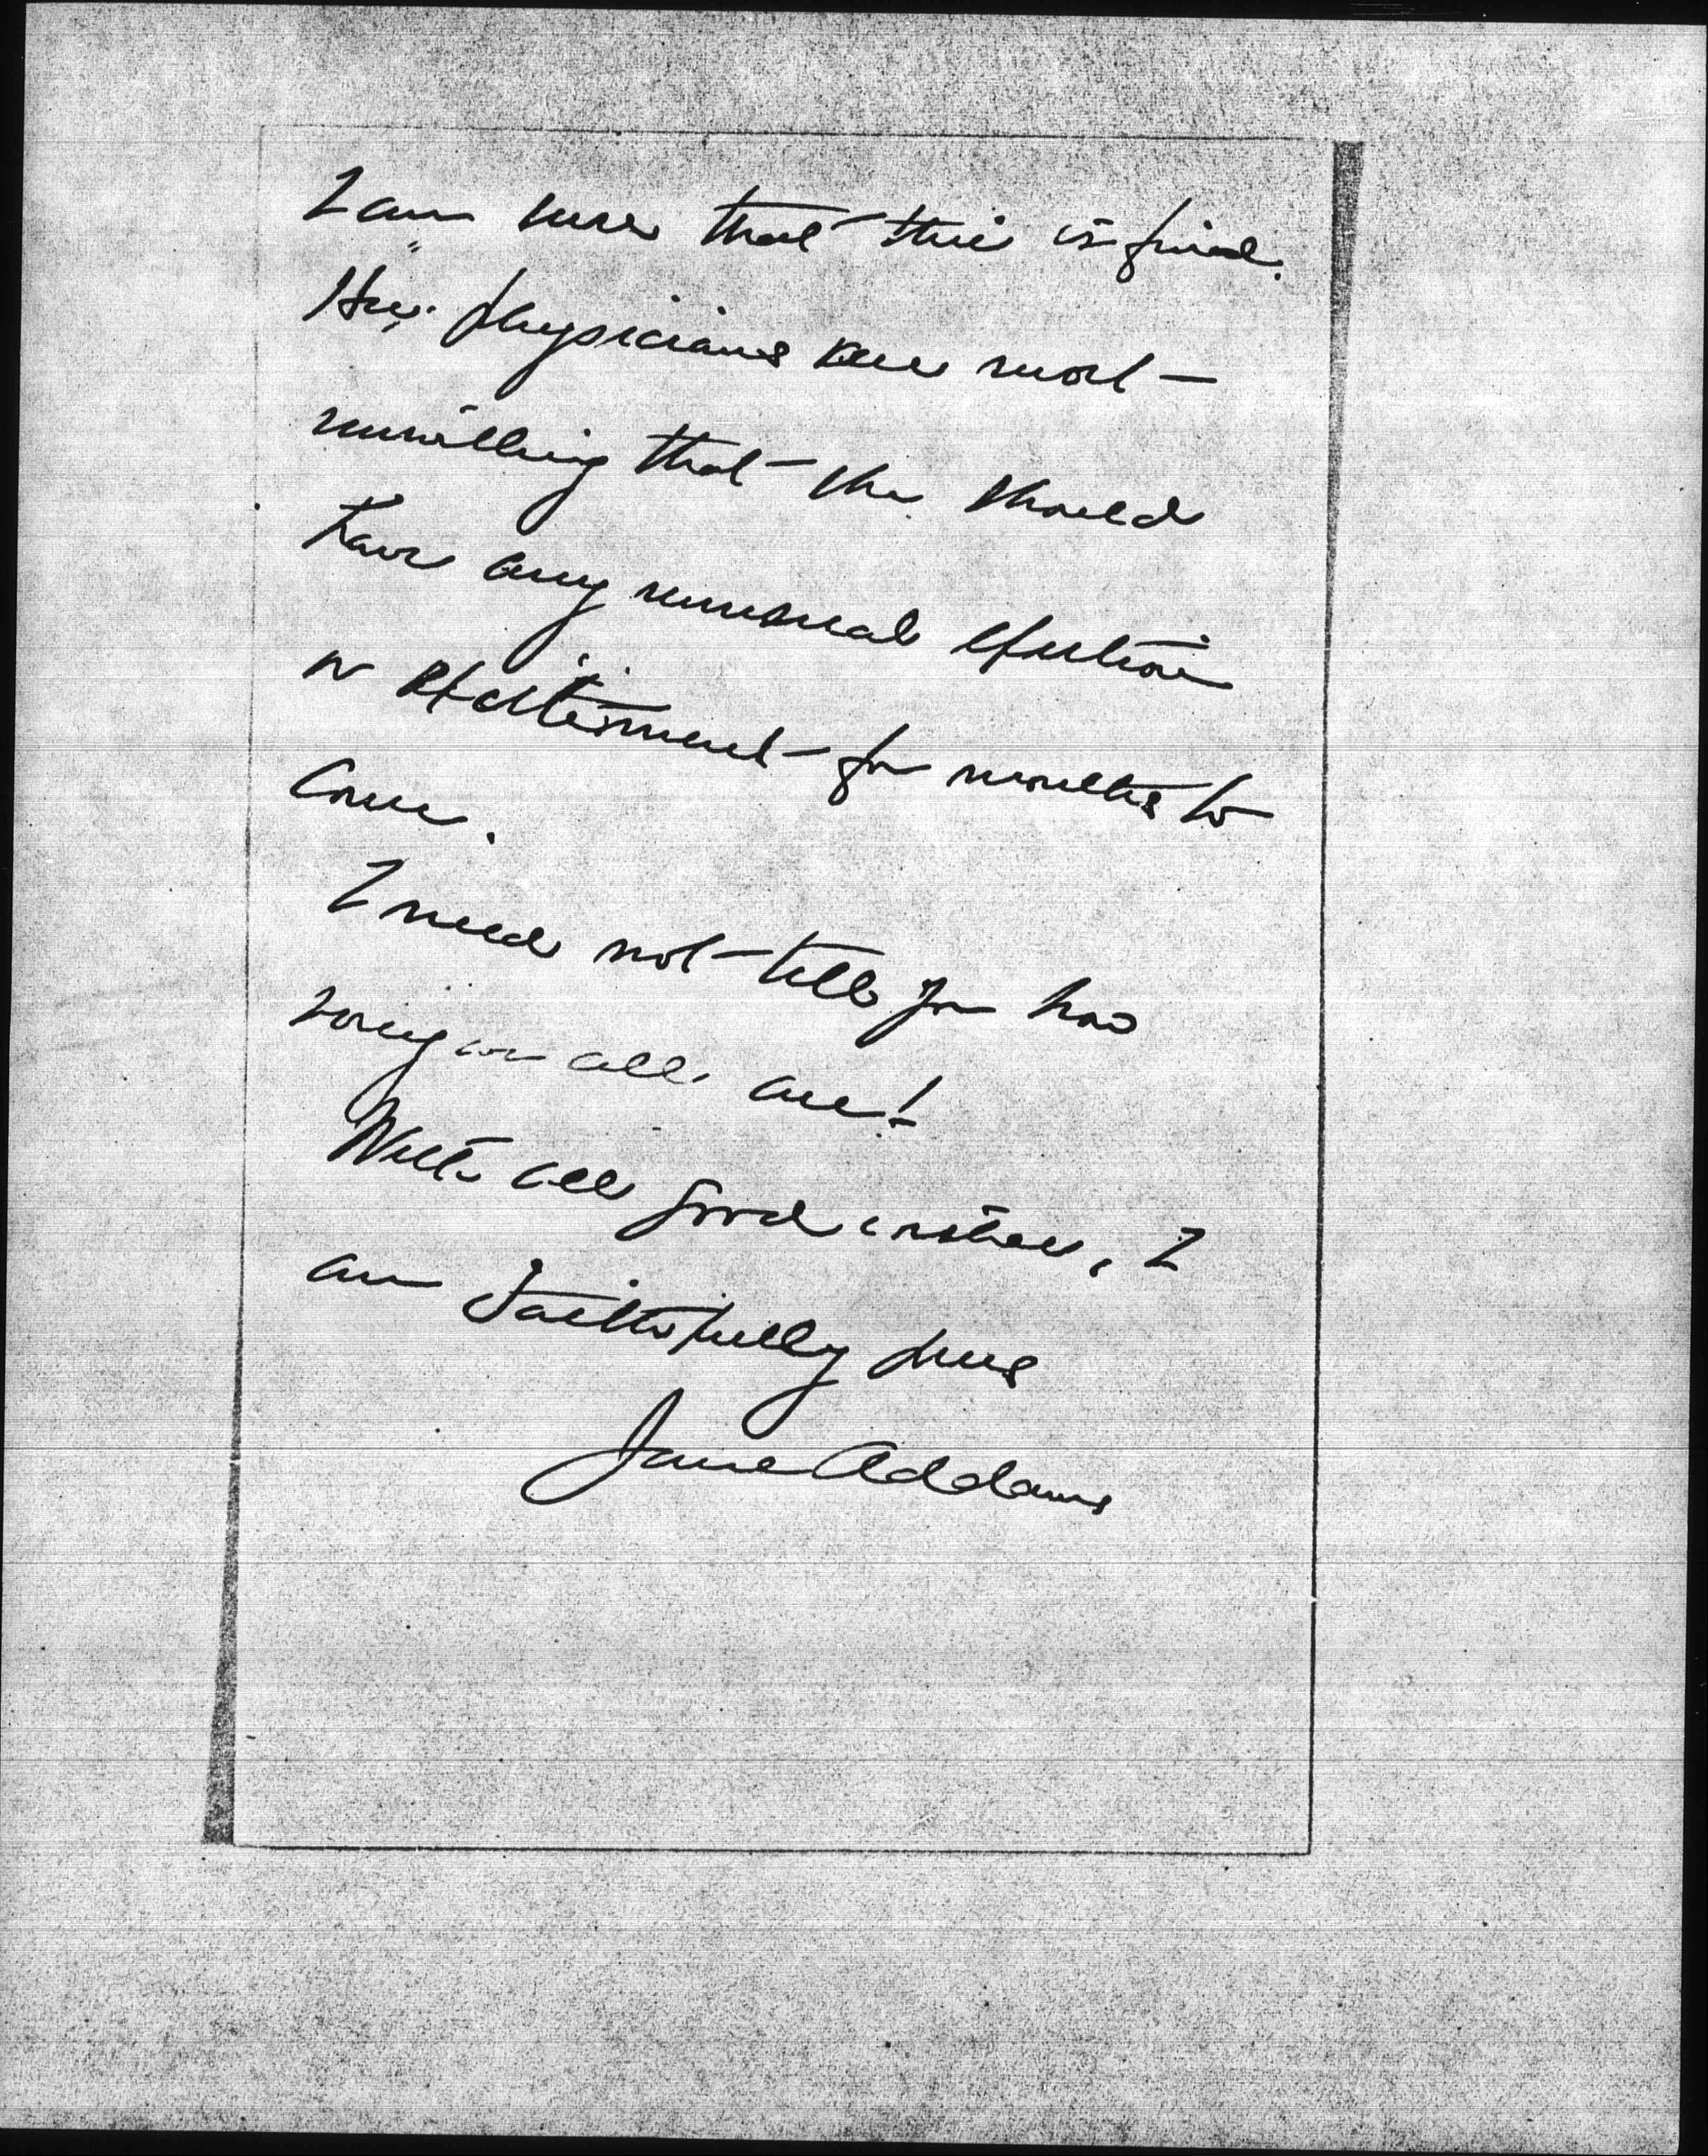 I am sure that this is final.
Her physicians are most
unwilling that she should
have any unusual exertion
or excitement for months to
come.
I need not tell you how
sorry we all are!
With all good wishes, I
am faithfully yours
Jane Addams